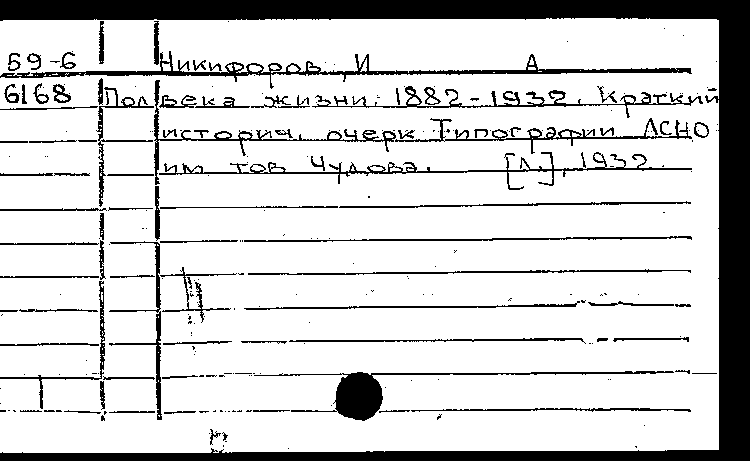 59-6 Никифоров, И А
6168 Пол века жизни. 1882-1932. Краткий
историч. очерк Типографии ЛСНО
им тов Чудова. [Л.], 1932.